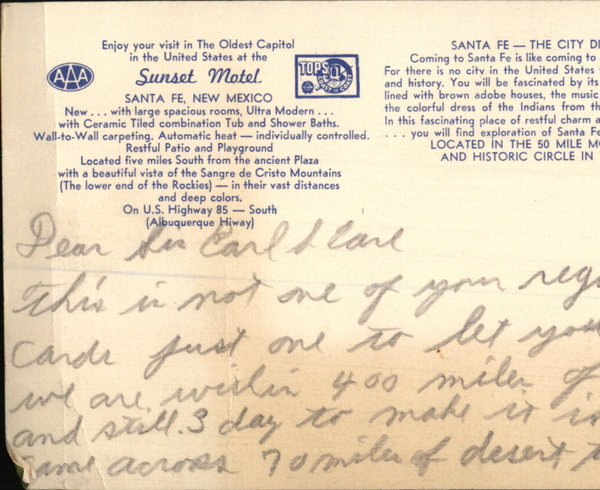 Enjoy your visit in The Oldest Capitol
in the United States at the
AAA
Sunset Motel
TOPS
SANTA FE, NEW MEXICO
New . . . with large spacious rooms, Ultra Modern . . .
with Ceramic Tiled combination Tub and Shower Baths.
Wall-to-Wall carpeting. Automatic heat — individually controlled.
Restful Patio and Playground
Located five miles South from the ancient Plaza
with a beautiful vista of the Sangre de Cristo Mountains
(The lower end of the Rockies) — in their vast distances
and deep colors.
On U.S. Highway 85 — South
(Albuquerque Hiway)
SANTA FE — THE CITY DI
Coming to Santa Fe is like coming to
For there is no city in the United States
and history. You will be fascinated by its
lined with brown adobe houses, the music
the colorful dress of the Indians from th
In this fascinating place of restful charm a
. . . you will find exploration of Santa Fe
LOCATED IN THE 50 MILE M
AND HISTORIC CIRCLE IN
Dear Sis Earl &
this is not one of your reg
Cards just one to let you
we are within 400 miles of
and still 3 day to make it in
Came across 70 miles of desert t